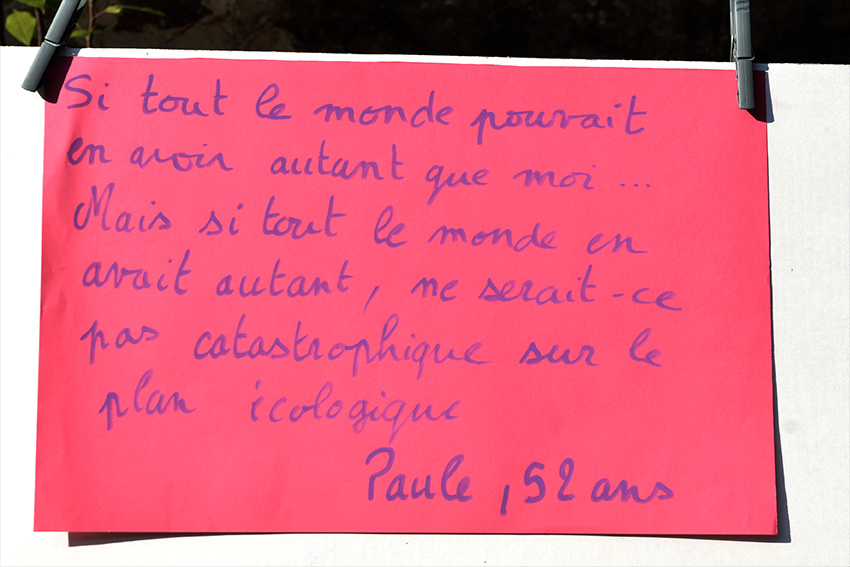 Si tout le monde pouvait
en avoir autant que moi ...
Mais si tout le monde en
avait autant, ne serait-ce
pas catastrophique sur le
plan écologique
Paule, 52 ans